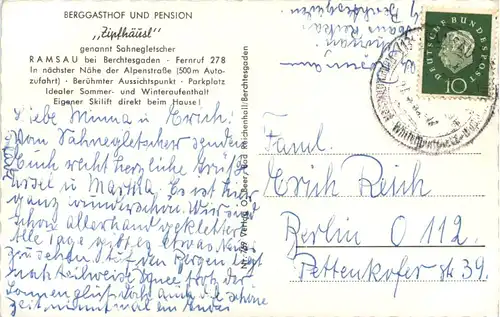 BERGGASTHOF UND PENSION
„Zipfhäusl“
genannt Sahnegletscher
RAMSAU bei Berchtesgaden - Fernruf 278
In nächster Nähe der Alpenstraße (500 m Auto-
zufahrt) - Berühmter Aussichtspunkt - Parkplatz
Idealer Sommer- und Winteraufenthalt
Eigener Skilift direkt beim Hause!
Liebe Minna u. Erich!
Vom Sahnegletscher senden
Euch recht herzliche Grüße
u. Martha. Es ist hier
ganz wunderschön. Wir sind
schon allerhand geklettert
Alle Tage gibt es etwas Neues
zu sehen. Auf den Bergen liegt
noch teilweise Schnee trotz der
Sonnenglut. Doch auch die schöne
Zeit nimmt mal ein Ende.
Verlag O. Beer, Bad Reichenhall/Berchtesgaden
DEUTSCHE BUNDESPOST
10
Faml.
Erich Reich
Berlin O 112
Pettenkofer str 39.